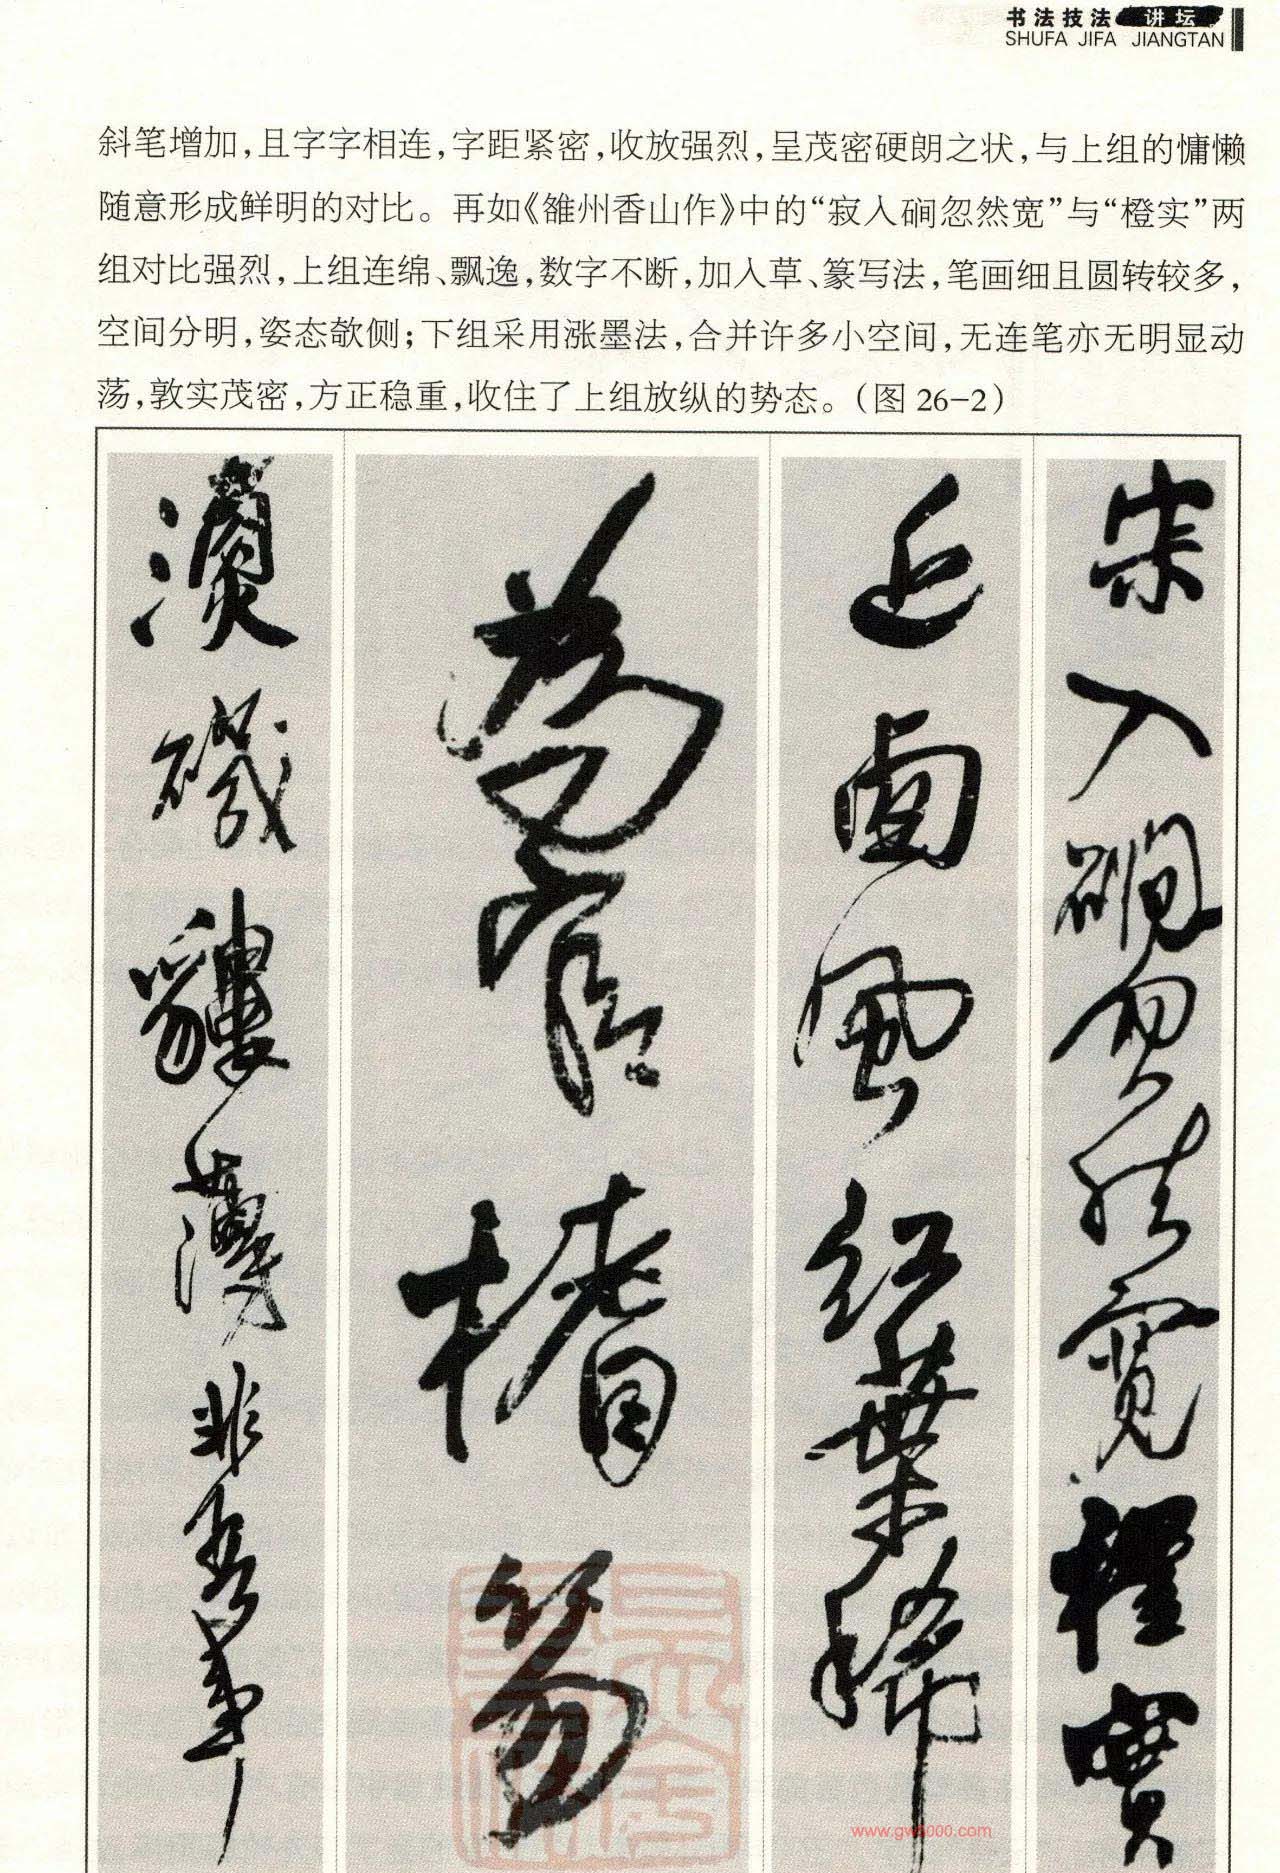 书法技法 讲坛
SHUFA JIFA JIANGTAN
斜笔增加,且字字相连,字距紧密,收放强烈,呈茂密硬朗之状,与上组的慵懒
随意形成鲜明的对比。再如《雒州香山作》中的“寂入硐忽然宽”与“橙实”两
组对比强烈,上组连绵、飘逸,数字不断,加入草、篆写法,笔画细且圆转较多,
空间分明,姿态欹侧;下组采用涨墨法,合并许多小空间,无连笔亦无明显动
荡,敦实茂密,方正稳重,收住了上组放纵的势态。(图 26-2)
入硐忽然寛橙實
近卤風红葉稀
磯貗薄非吾事
www.gw5000.com